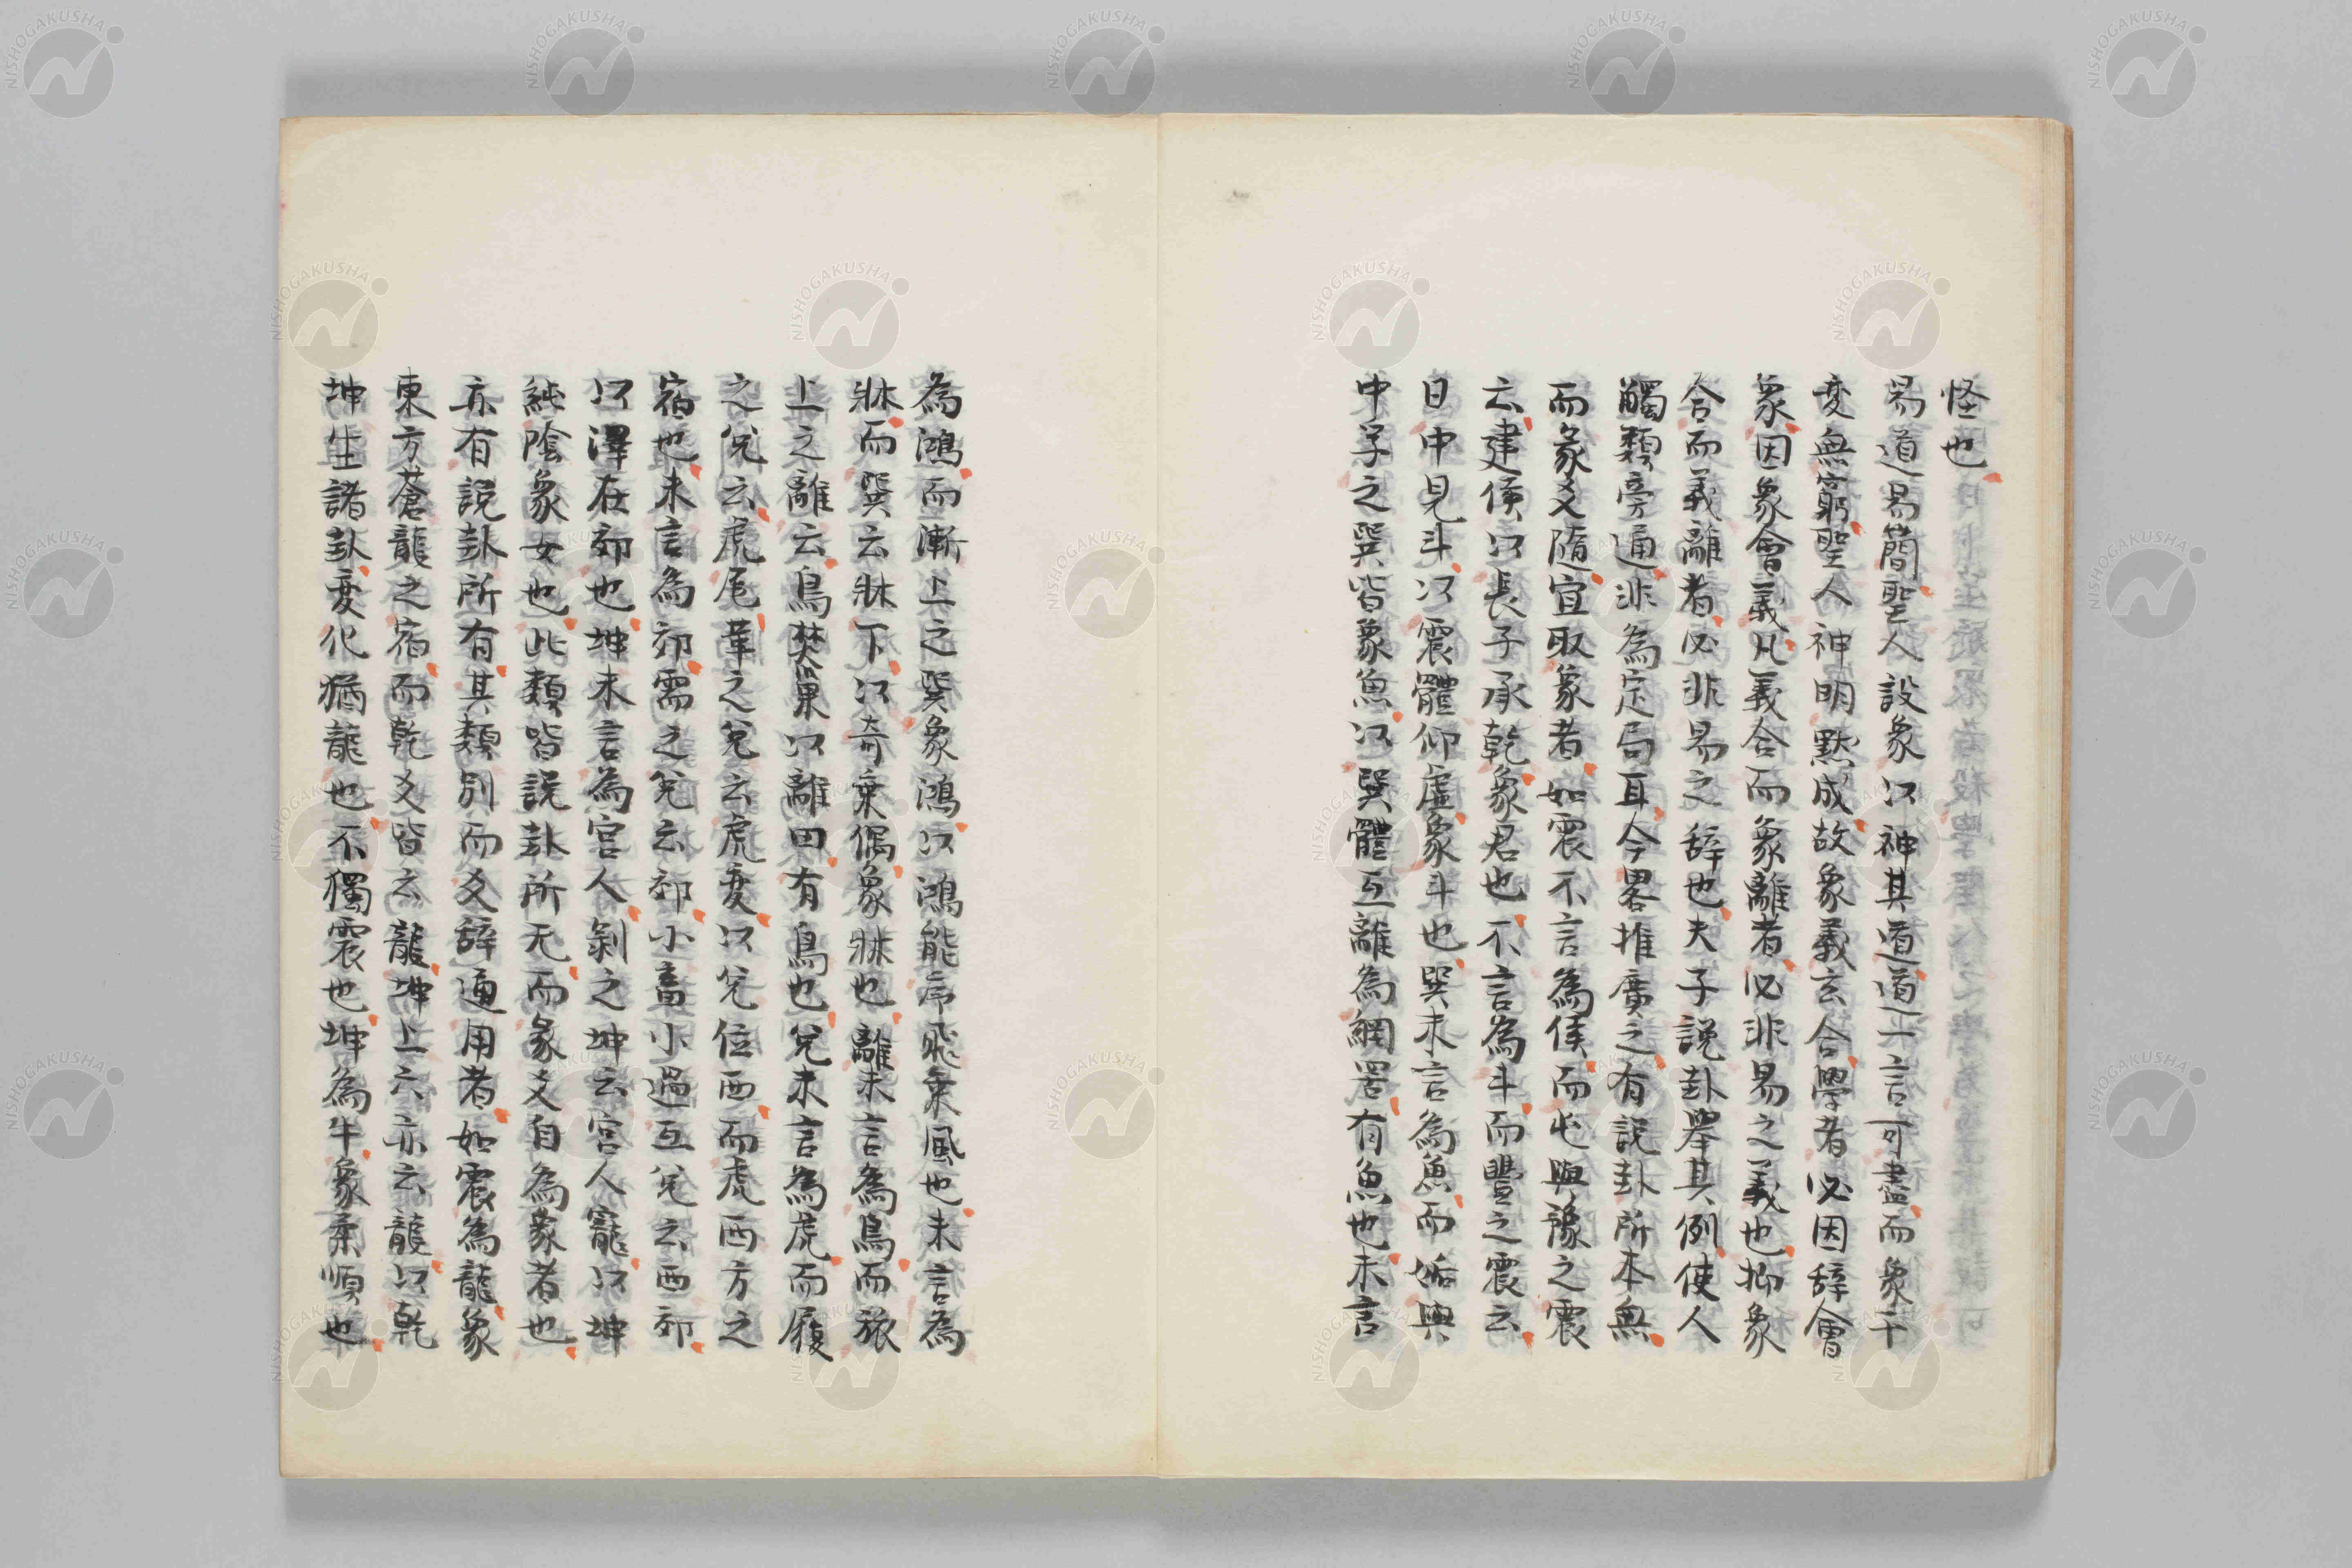 怪也
易道易簡聖人設象以神其道道一言可盡而象千
変無窮聖人神明黙成故象義玄合學者必因辞會
象因象會義凡義合而象離者必非易之義也抑象
合而義離者必非易之辞也夫子説卦舉其例使人
觸類旁通非為定局耳今畧推廣之有説卦所本無
而彖爻隨宜取象者如震不言為侯而屯與豫之震
云建侯以長子承乾象君也不言為斗而豐之震云
日中見斗以震體仰虚象斗也巽未言為魚而姤與
中孚之巽皆象魚以巽體互離為網罟有魚也未言
為鴻而漸上之巽象鴻以鴻能序飛乗風也未言為
牀而巽云牀下以奇乗偶象牀也離未言為鳥而旅
上之離云鳥焚巢以離曰有鳥也兌未言為虎而履
之兌云虎尾革之兌云虎変以兌位西而虎西方之
宿也未言為郊需之兌云郊小畜小過互兌云西郊
以澤在郊也坤未言為宮人剝之坤云宮人寵以坤
純陰象女也此類皆説卦所无而彖爻自為象者也
亦有説卦所有其類別而爻辞通用者如震為龍象
東方蒼龍之宿而乾爻皆云龍坤上六亦云龍以乾
坤生諸卦変化猶龍也不獨震也坤為牛象柔順也
NISHOGAKUSHA